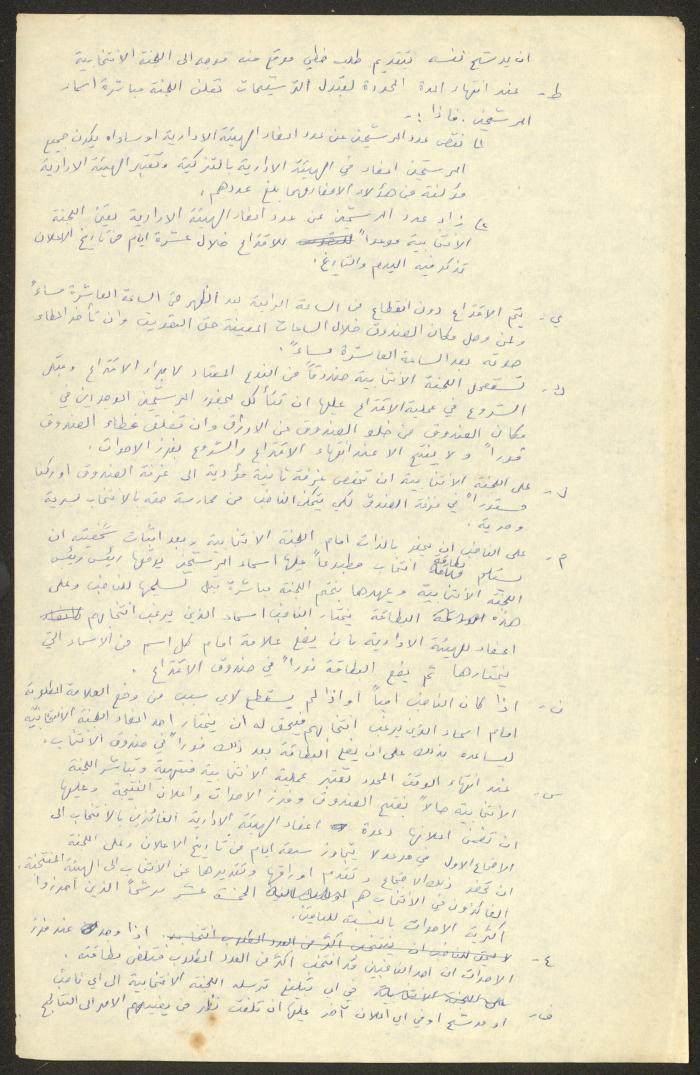 ان يرشح نفسه بتقديم طلب خطي موقع منه موجه الى اللجنة الانتخابية
ط- عند انتهاء المدة المحددة لقبول الترشيحات تعلن اللجنة مباشرة اسماء
المرشحين. فاذا :-
١) نقص عدد المرشحين عن عدد اعضاء الهيئة الادارية او ساواه يكون جميع
المرشحين اعضاء في الهيئة الادارية بالتزكية وتعتبر الهيئة الادارية
مؤلفة من هؤلاء الاعضاء مهما بلغ عددهم.
٢) زاد عدد المرشحين عن عدد اعضاء الهيئة الادارية تعين اللجنة
الانتخابية موعداً للاقتراع خلال عشرة ايام من تاريخ الاعلان
تذكر فيه اليوم والتاريخ.
ي- يتم الاقتراع دون انقطاع من الساعة الرابعة بعد الظهر حتى الساعة العاشرة مساءً
ولمن وصل مكان الصندوق خلال الساعات المعينة حق التصويت وان تأخر اعطاء
صوته بعد الساعة العاشرة مساءً.
ك- تستعمل اللجنة الانتخابية صندوقاً من النوع المعتاد لاجراء الاقتراع وقبل
الشروع في عملية الاقتراع عليها ان تتأكد بحضور المرشحين الموجودين في
مكان الصندوق من خلو الصندوق من الاوراق وان تغلق غطاء الصندوق
فوراً ولا يفتح الا عند انتهاء الاقتراع والشروع بفرز الاصوات.
ل- على اللجنة الانتخابية ان تخصص غرفة ثانية مؤدية الى غرفة الصندوق او ركنا
مستوراً في غرفة الصندوق لكي يتمكن الناخب من ممارسة حقه بالانتخاب بسرية
وحرية.
م- على الناخب ان يحضر بالذات امام اللجنة الانتخابية وبعد اثبات شخصيته ان
يستلم بطاقة انتخاب مطبوعاً عليها اسماء المرشحين يوقعها رئيس
اللجنة الانتخابية ويمهرها بختم اللجنة مباشرة قبل تسليمها للناخب وعلى
هذه البطاقة يختار الناخب اسماء الذين يرغب انتخابهم
اعضاء للهيئة الادارية بان يضع علامة امام كل اسم من الاسماء التي
يختارها ثم يضع البطاقة فوراً في صندوق الاقتراع.
ن- اذا كان الناخب امياً او اذا لم يستطع لاي سبب من وضع العلامة المطلوبة
امام اسماء الذين يرغب انتخابهم فيحق له ان يختار احد اعضاء اللجنة الانتخابية
ليساعده بذلك على ان يضع البطاقة بعد ذلك فوراً في صندوق الانتخاب.
س- عند انتهاء الوقت المحدد تعتبر عملية الانتخابية منتهية وتباشر اللجنة
الانتخابية حالاً بفتح الصندوق وفرز الاصوات واعلان النتيجة وعليها
ان تضمن اعلانها دعوة اعضاء الهيئة الادارية الفائزين بالانتخاب الى
الاجتماع الاول في موعد لا يتجاوز سبعة ايام من تاريخ الاعلان وعلى اللجنة
ان تحضر ذلك الاجتماع وتقدم اوراقها وتقريرها عن الانتخاب الى الهيئة المنتخبة.
الفائزون في الانتخاب هم الخمسة عشر مرشحاً الذين احرزوا
اكثرية الاصوات بالنسبة للباقين.
ع- لا يحق للناخب ان ينتخب اكثر من العدد المطلوب انتخابه. اذا وجد عند فرز
الاصوات ان احد الناخبين قد انتخب اكثر من العدد المطلوب فتلغى بطاقته.
ف- على اللجنة الانتخابية في اي تبليغ ترسله اللجنة الانتخابية الى اي ناخب
او مرشح او في اي اعلان آخر عليها ان تلفت نظر من يعنيهم الامر الى النتائج